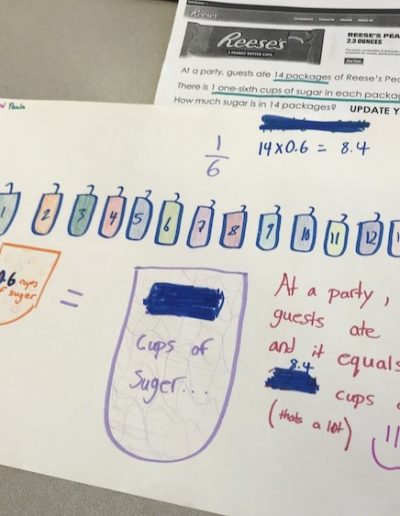 Reese's
REESE'S PEA
2.3 OUNCES
At a party, guests ate 14 packages of Reese's Pea
There is 1 one-sixth cups of sugar in each packag
How much sugar is in 14 packages? UPDATE Y
Paula
1/6
14x0.6 = 8.4
1 2 3 4 5 6 7 8 9 10 11 12
.6 cups
of suger
=
Cups of
Suger...
At a party,
guests ate
and it equals
8.4
cups
(thats a lot)